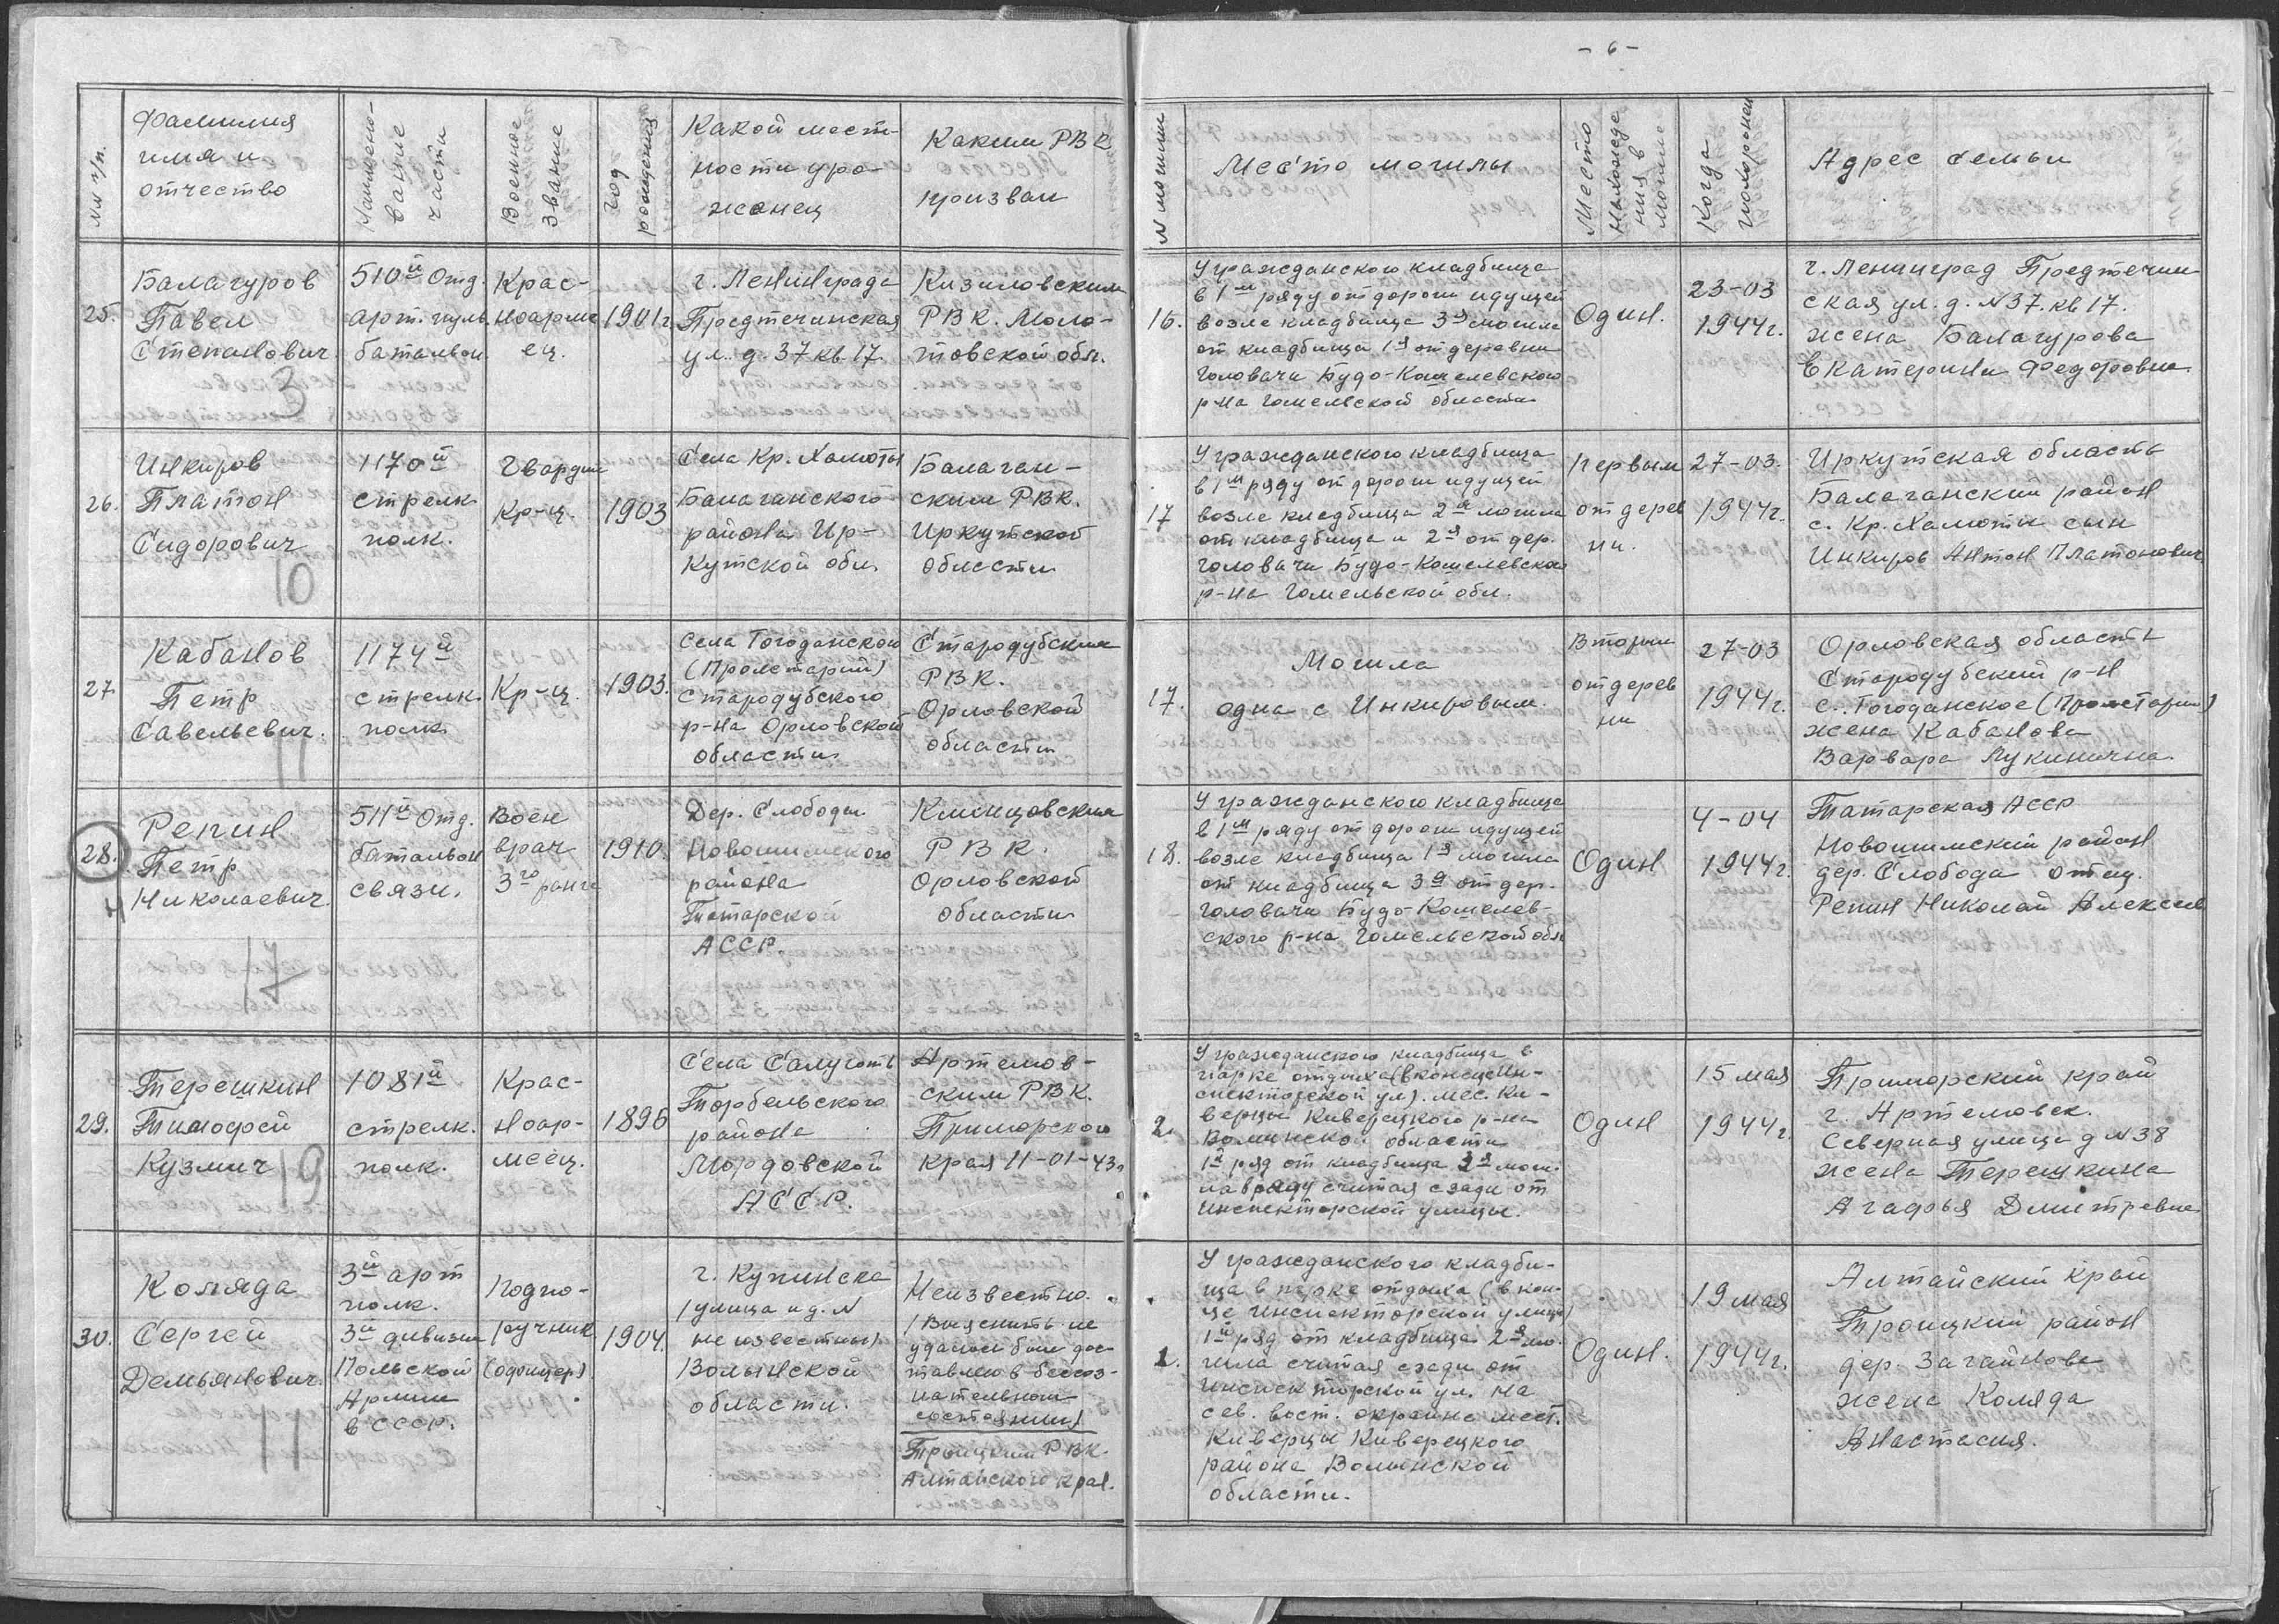 - 6 -
№№ п/п.
Фамилия
имя и
отчество
Наимено-
вание
части
Военное
звание
год
рождения
Какой мест-
ности уро-
женец
Каким РВК
призван
№ могилы
Место могилы
Место
нахожде
ния в
могиле
Когда
похоронен
Адрес семьи
25.
Балагуров
Павел
Степанович
3
510й Отд.
арт. пуль.
батальон.
Крас-
ноарме
ец.
1901г.
г. Ленинграда
Предтечинская
ул. д. 37 кв 17.
Кизиловским
РВК. Моло-
товской обл.
16.
У гражданского кладбища
в 1м ряду от дороги идущей
возле кладбища 3я могила
от кладбища 1я от деревни
Головачи Будо-Кошелевского
р-на Гомельской области
Один.
23-03
1944г.
г. Ленинград Предтечин
ская ул. д. №37. кв 17.
жена Балагурова
Екатерина Федоровна
26.
Инкиров
Платон
Сидорович
10
1170й
стрелк.
полк.
Гвардии
Кр-ц.
1903
Села Кр. Халюты
Балаганского
района Ир-
кутской обл.
Балаган-
ским РВК.
Иркутской
области
17
У гражданского кладбища
в 1м ряду от дороги идущей
возле кладбища 2я могила
от кладбища и 2я от дер.
Головачи Будо-Кошелевского
р-на Гомельской обл.
Первым
от дерев
ни.
27-03.
1944г.
Иркутская область
Балаганский район
с. Кр. Халюты сын
Инкиров Антон Платонович
27.
Кабанов
Петр
Савельевич.
11
1174й
стрелк.
полк
Кр-ц.
1903.
Села Гогоданского
(Пролетарий)
Стародубского
р-на Орловской
области
Стародубским
РВК.
Орловской
области
17.
Могила
одна с Инкировым.
Вторым
от дерев
ни
27-03
1944г.
Орловская область
Стародубский р-н
с. Гогоданское (Пролетарий)
жена Кабанова
Варвара Лукинична.
28.
Репин
Петр
Николаевич.
17
511й Отд.
батальон
связи.
Воен
врач
3го ранга
1910.
Дер. Слободы
Новошимского
района
Татарской
АССР.
Клинцовским
РВК.
Орловской
области
18.
У гражданского кладбища
в 1м ряду от дороги идущей
возле кладбища 1я могила
от кладбища 3я от дер.
Головачи Будо-Кошелев-
ского р-на Гомельской обл
Один
4-04
1944г.
Татарская АССР
Новошимский район
дер. Слобода отец.
Репин Николай Алексеев
29.
Терешкин
Тимофей
Кузмич
19
1081й
стрелк.
полк.
Крас-
ноар-
меец.
1896
Села Салуготь
Торбельского
района
Мордовской
АССР.
Артемов-
ским РВК.
Приморского
края 11-01-43г
2.
У гражданского кладбища в
парке отдыха (в конце Ин-
спекторской ул). мес. Ки-
верцы Киверецкого р-на
Волынской области
1й ряд от кладбища 3я моги-
ла в ряду считая сзади от
инспекторской улицы.
Один
15 мая
1944г.
Приморский край
г. Артемовск.
Северная улица д №38
жена Терешкина
Агафья Дмитревна
30.
Коляда
Сергей
Демьянович.
11
3й арт
полк.
3й дивизии
Польской
Армии
в СССР.
Подпо-
ручник
(офицер).
1904.
г. Купинска
(улица и д. №
не известны).
Волынской
области.
Неизвестно.
(Выяснить не
удалось был дос-
тавлен в бессоз-
нательном
состоянии)
Троицким РВК.
Алтайского края.
1.
У гражданского кладби-
ща в парке отдыха (в кон-
це инспекторской улицы)
1й ряд от кладбища 2я мо-
гила считая сзади от
инспекторской ул. на
сев. вост. окраине мест.
Киверцы Киверецкого
района Волынской
области.
Один.
19 мая
1944г.
Алтайский край
Троицкий район
дер. Загайнова
жена Коляда
Анастасия.